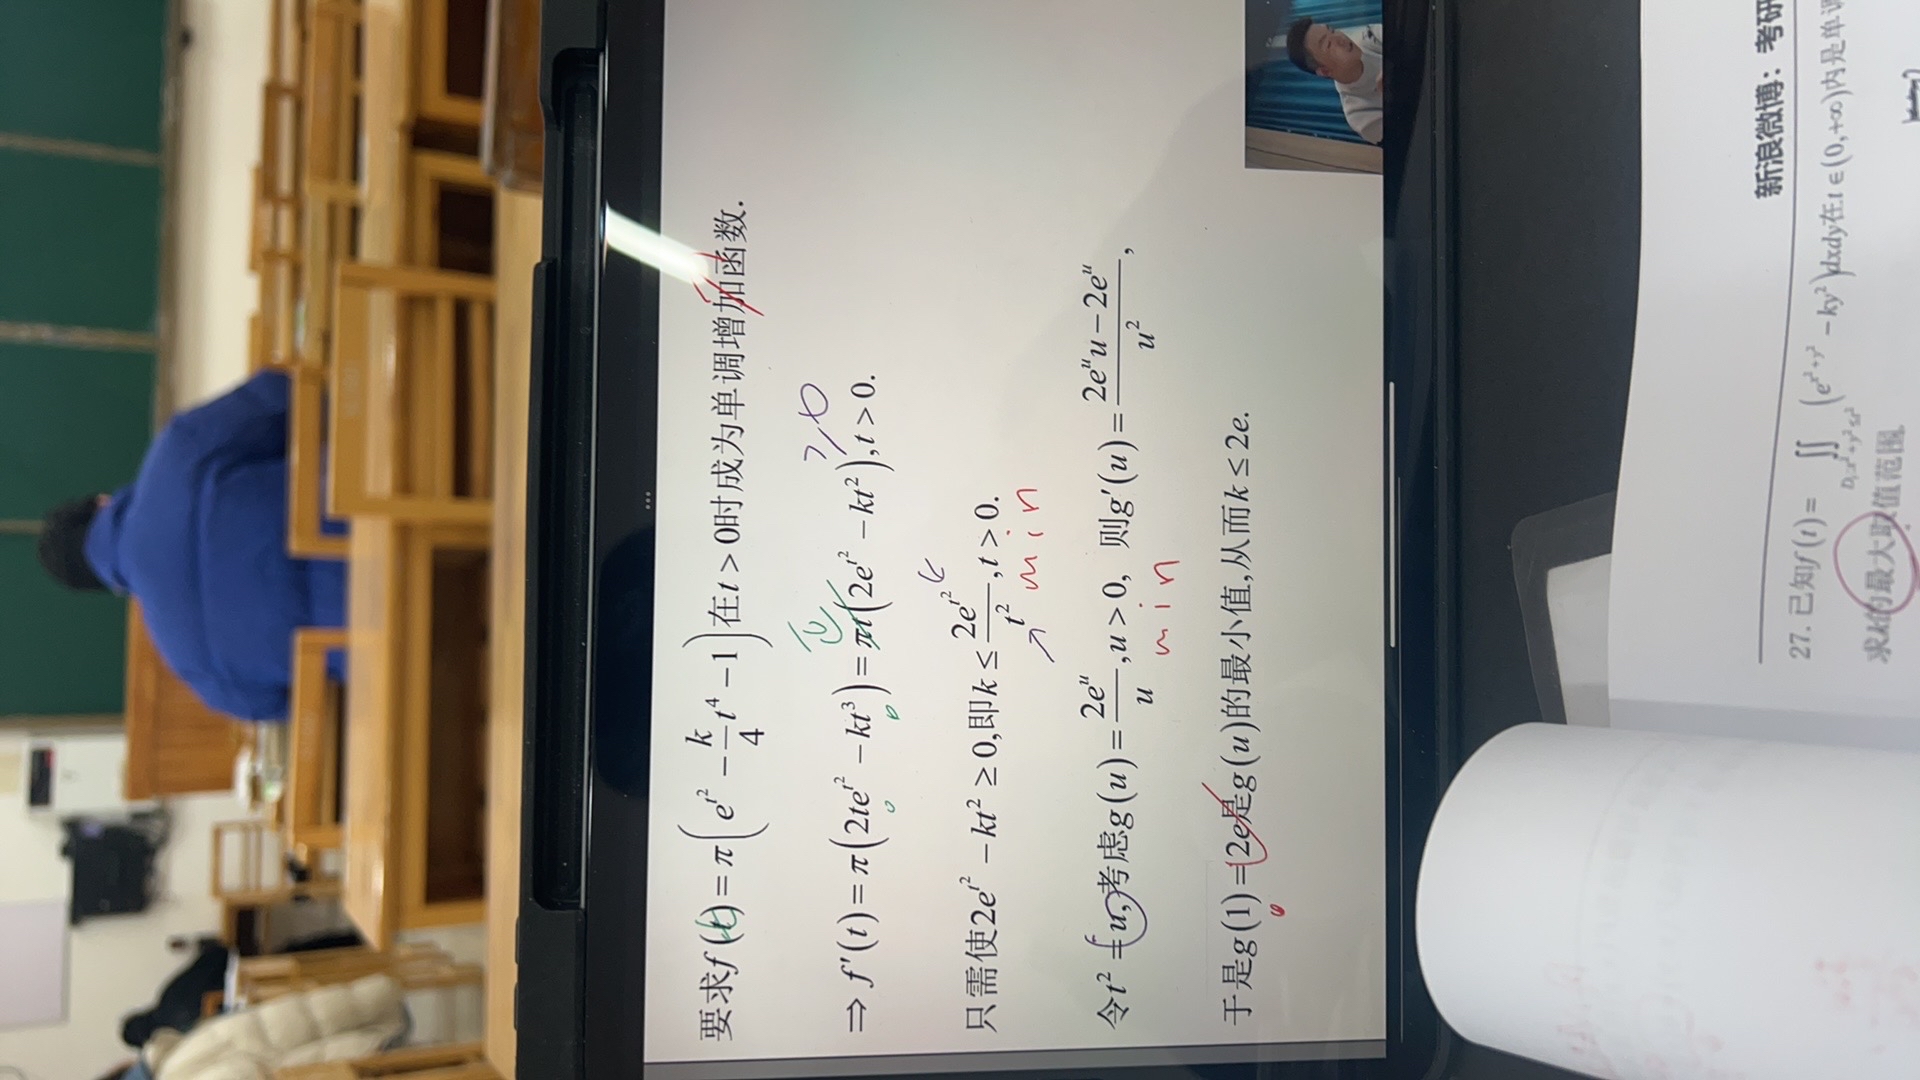 要求f(t)=π(e^{t^2}-\frac{k}{4}t^4-1)在t>0时成为单调增加函数.
⇒f'(t)=π(2te^{t^2}-kt^3)=πt(2e^{t^2}-kt^2),t>0.
≥0
只需使2e^{t^2}-kt^2≥0,即k≤\frac{2e^{t^2}}{t^2},t>0.
min
令t^2=u,考虑g(u)=\frac{2e^u}{u},u>0, 则g'(u)=\frac{2e^u u-2e^u}{u^2},
min
于是g(1)=2e是g(u)的最小值,从而k≤2e.
新浪微博：考研
27.已知f(t)=∬_{D:x^2+y^2≤t^2}(e^{x^2+y^2}-ky^2)dxdy在t∈(0,+∞)内是单调
求k的最大取值范围.